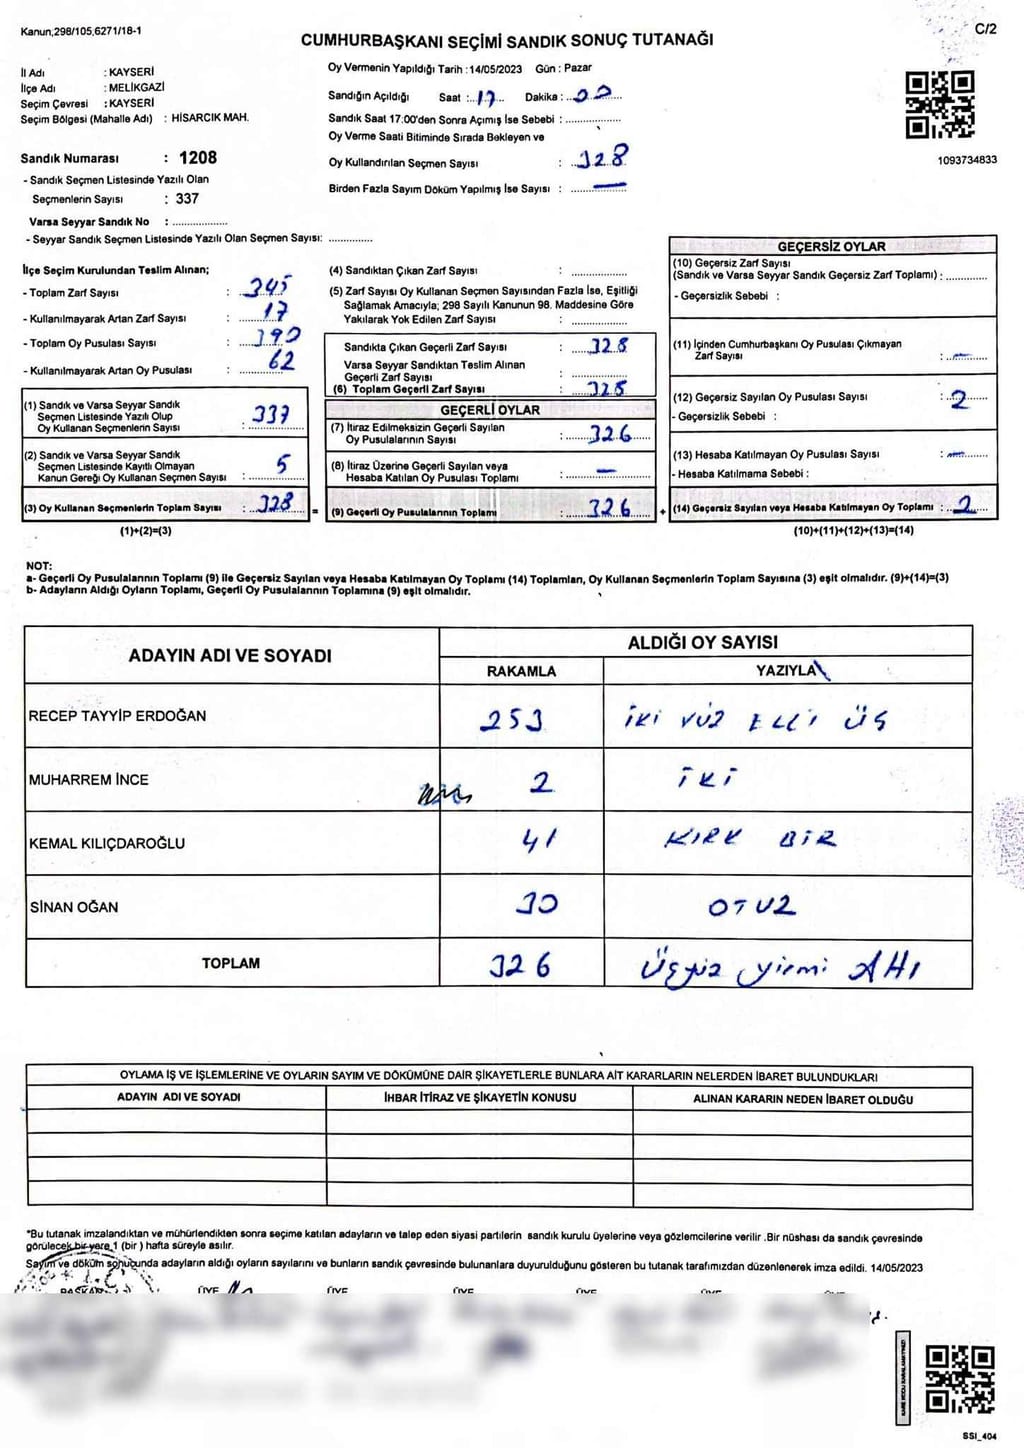 Kanun,298/105,6271/18-1
C/2
CUMHURBAŞKANI SEÇİMİ SANDIK SONUÇ TUTANAĞI
İl Adı : KAYSERİ
İlçe Adı : MELİKGAZİ
Seçim Çevresi : KAYSERİ
Seçim Bölgesi (Mahalle Adı) : HİSARCIK MAH.
Sandık Numarası : 1208
- Sandık Seçmen Listesinde Yazılı Olan
Seçmenlerin Sayısı : 337
Varsa Seyyar Sandık No : ....................
- Seyyar Sandık Seçmen Listesinde Yazılı Olan Seçmen Sayısı: ...............
Oy Vermenin Yapıldığı Tarih :14/05/2023 Gün : Pazar
Sandığın Açıldığı Saat : 17 Dakika : 00
Sandık Saat 17:00'den Sonra Açımış İse Sebebi : ...................
Oy Verme Saati Bitiminde Sırada Bekleyen ve
Oy Kullandırılan Seçmen Sayısı : 328
Birden Fazla Sayım Döküm Yapılmış İse Sayısı : —
1093734833
İlçe Seçim Kurulundan Teslim Alınan;
- Toplam Zarf Sayısı : 345
- Kullanılmayarak Artan Zarf Sayısı : 17
- Toplam Oy Pusulası Sayısı : 390
- Kullanılmayarak Artan Oy Pusulası : 62
(1) Sandık ve Varsa Seyyar Sandık
Seçmen Listesinde Yazılı Olup
Oy Kullanan Seçmenlerin Sayısı : 337
(2) Sandık ve Varsa Seyyar Sandık
Seçmen Listesinde Kayıtlı Olmayan
Kanun Gereği Oy Kullanan Seçmen Sayısı : 5
(3) Oy Kullanan Seçmenlerin Toplam Sayısı : 328
(1)+(2)=(3)
(4) Sandıktan Çıkan Zarf Sayısı : ...............
(5) Zarf Sayısı Oy Kullanan Seçmen Sayısından Fazla İse, Eşitliği
Sağlamak Amacıyla; 298 Sayılı Kanunun 98. Maddesine Göre
Yakılarak Yok Edilen Zarf Sayısı : ...............
Sandıkta Çıkan Geçerli Zarf Sayısı : 328
Varsa Seyyar Sandıktan Teslim Alınan
Geçerli Zarf Sayısı : ...............
(6) Toplam Geçerli Zarf Sayısı : 328
GEÇERLİ OYLAR
(7) İtiraz Edilmeksizin Geçerli Sayılan
Oy Pusulalarının Sayısı : 326
(8) İtiraz Üzerine Geçerli Sayılan veya
Hesaba Katılan Oy Pusulası Toplamı : —
= (9) Geçerli Oy Pusulalarının Toplamı : 326
GEÇERSİZ OYLAR
(10) Geçersiz Zarf Sayısı
(Sandık ve Varsa Seyyar Sandık Geçersiz Zarf Toplamı) : ............
- Geçersizlik Sebebi :
(11) İçinden Cumhurbaşkanı Oy Pusulası Çıkmayan
Zarf Sayısı : —
(12) Geçersiz Sayılan Oy Pusulası Sayısı : 2
- Geçersizlik Sebebi :
(13) Hesaba Katılmayan Oy Pusulası Sayısı : —
- Hesaba Katılmama Sebebi :
+ (14) Geçersiz Sayılan veya Hesaba Katılmayan Oy Toplamı : 2
(10)+(11)+(12)+(13)=(14)
NOT:
a- Geçerli Oy Pusulalarının Toplamı (9) ile Geçersiz Sayılan veya Hesaba Katılmayan Oy Toplamı (14) Toplamları, Oy Kullanan Seçmenlerin Toplam Sayısına (3) eşit olmalıdır. (9)+(14)=(3)
b- Adayların Aldığı Oyların Toplamı, Geçerli Oy Pusulalarının Toplamına (9) eşit olmalıdır.
ADAYIN ADI VE SOYADI ALDIĞI OY SAYISI
RAKAMLA YAZIYLA
RECEP TAYYİP ERDOĞAN 253 İKİ YÜZ ELLİ ÜÇ
MUHARREM İNCE 2 İKİ
KEMAL KILIÇDAROĞLU 41 KIRK BİR
SİNAN OĞAN 30 OTUZ
TOPLAM 326 Üçyüz yirmi Altı
OYLAMA İŞ VE İŞLEMLERİNE VE OYLARIN SAYIM VE DÖKÜMÜNE DAİR ŞİKAYETLERLE BUNLARA AİT KARARLARIN NELERDEN İBARET BULUNDUKLARI
ADAYIN ADI VE SOYADI İHBAR İTİRAZ VE ŞİKAYETİN KONUSU ALINAN KARARIN NEDEN İBARET OLDUĞU
*Bu tutanak imzalandıktan ve mühürlendikten sonra seçime katılan adayların ve talep eden siyasi partilerin sandık kurulu üyelerine veya gözlemcilerine verilir .Bir nüshası da sandık çevresinde
görülecek bir yere 1 (bir ) hafta süreyle asılır.
Sayım ve döküm sonucunda adayların aldığı oyların sayılarını ve bunların sandık çevresinde bulunanlara duyurulduğunu gösteren bu tutanak tarafımızdan düzenlenerek imza edildi. 14/05/2023
BAŞKAN ÜYE ÜYE ÜYE ÜYE ÜYE
SSI_404